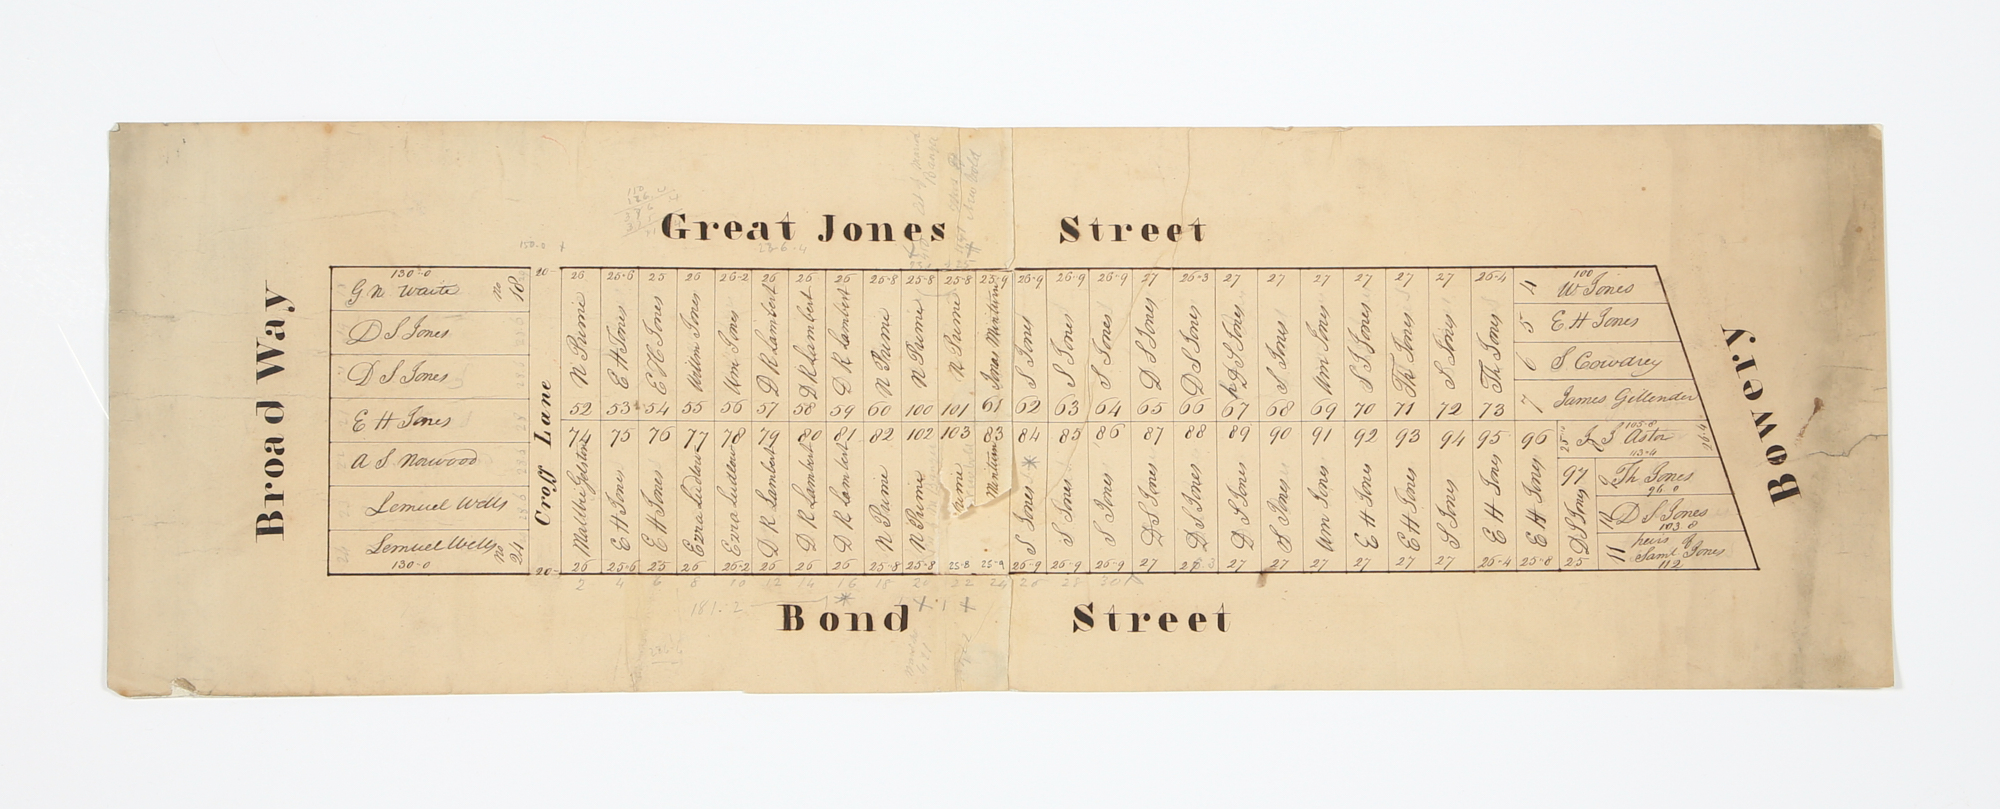 Great Jones Street
Broad Way
130-0
G N Waite
no 18
D S Jones
D S Jones
E H Jones
A S Norwood
Lemuel Wells
Lemuel Wells
no 24
130-0
Croff Lane
20
20
26 25-6 25 26 26-2 26 26 26 25-8 25-8 25-8 25-9 26-9 26-9 26-9 27 26-3 27 27 27 27 27 27 26-4
N Prime
E H Jones
E H Jones
Willm Jones
Wm Jones
D R Lambert
D R Lambert
D R Lambert
N Prime
N Prime
N Prime
Jonas Minturn
S Jones
S Jones
S Jones
D S Jones
D S Jones
D S Jones
S Jones
Wm Jones
S J Jones
Th Jones
S Jones
Th Jones
52 53 54 55 56 57 58 59 60 100 101 61 62 63 64 65 66 67 68 69 70 71 72 73
74 75 76 77 78 79 80 81 82 102 103 83 84 85 86 87 88 89 90 91 92 93 94 95 96
E H Jones
E H Jones
Ezra Ludlow
Ezra Ludlow
D R Lambert
D R Lambert
D R Lambert
N Prime
N Prime
Minturn
S Jones
S Jones
S Jones
D S Jones
D S Jones
D S Jones
S Jones
Wm Jones
E H Jones
E H Jones
S Jones
E H Jones
E H Jones
97
D S Jones
26 25-6 25 26 26-2 26 26 26 25-8 25-8 25-8 25-9 26-9 26-9 26-9 27 27 27 27 27 27 27 26-4 25-8 25
2 4 6 8 10 12 14 16 18 20 22 24 26 28 30
100
4 W Jones
5 E H Jones
6 S Cowdrey
7 James Gillender
105-8
J J Astor
113-4
26-4
9 Th Jones
96 0
10 D S Jones
103 8
11 heirs of
Saml Jones
112
Bowery
181-2
Bond Street